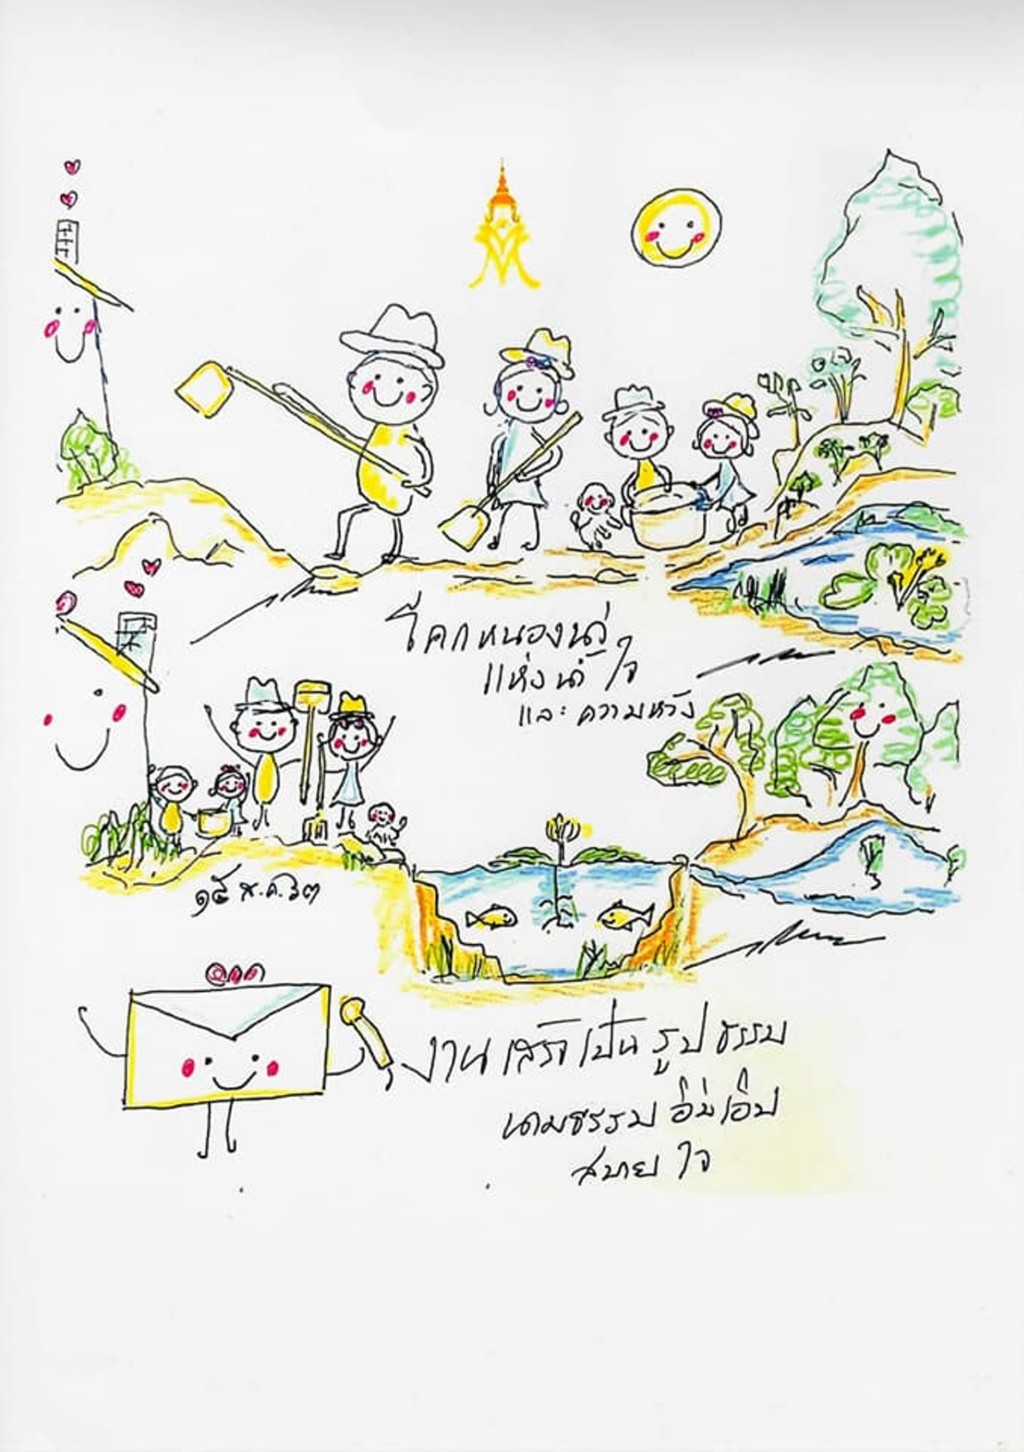 โคกหนองนา
แห่งน้ำใจ
และความหวัง
๑๕ ส.ค. ๖๓
งานเสร็จเป็นรูปธรรม
นามธรรมอิ่มเอิบ
สบายใจ